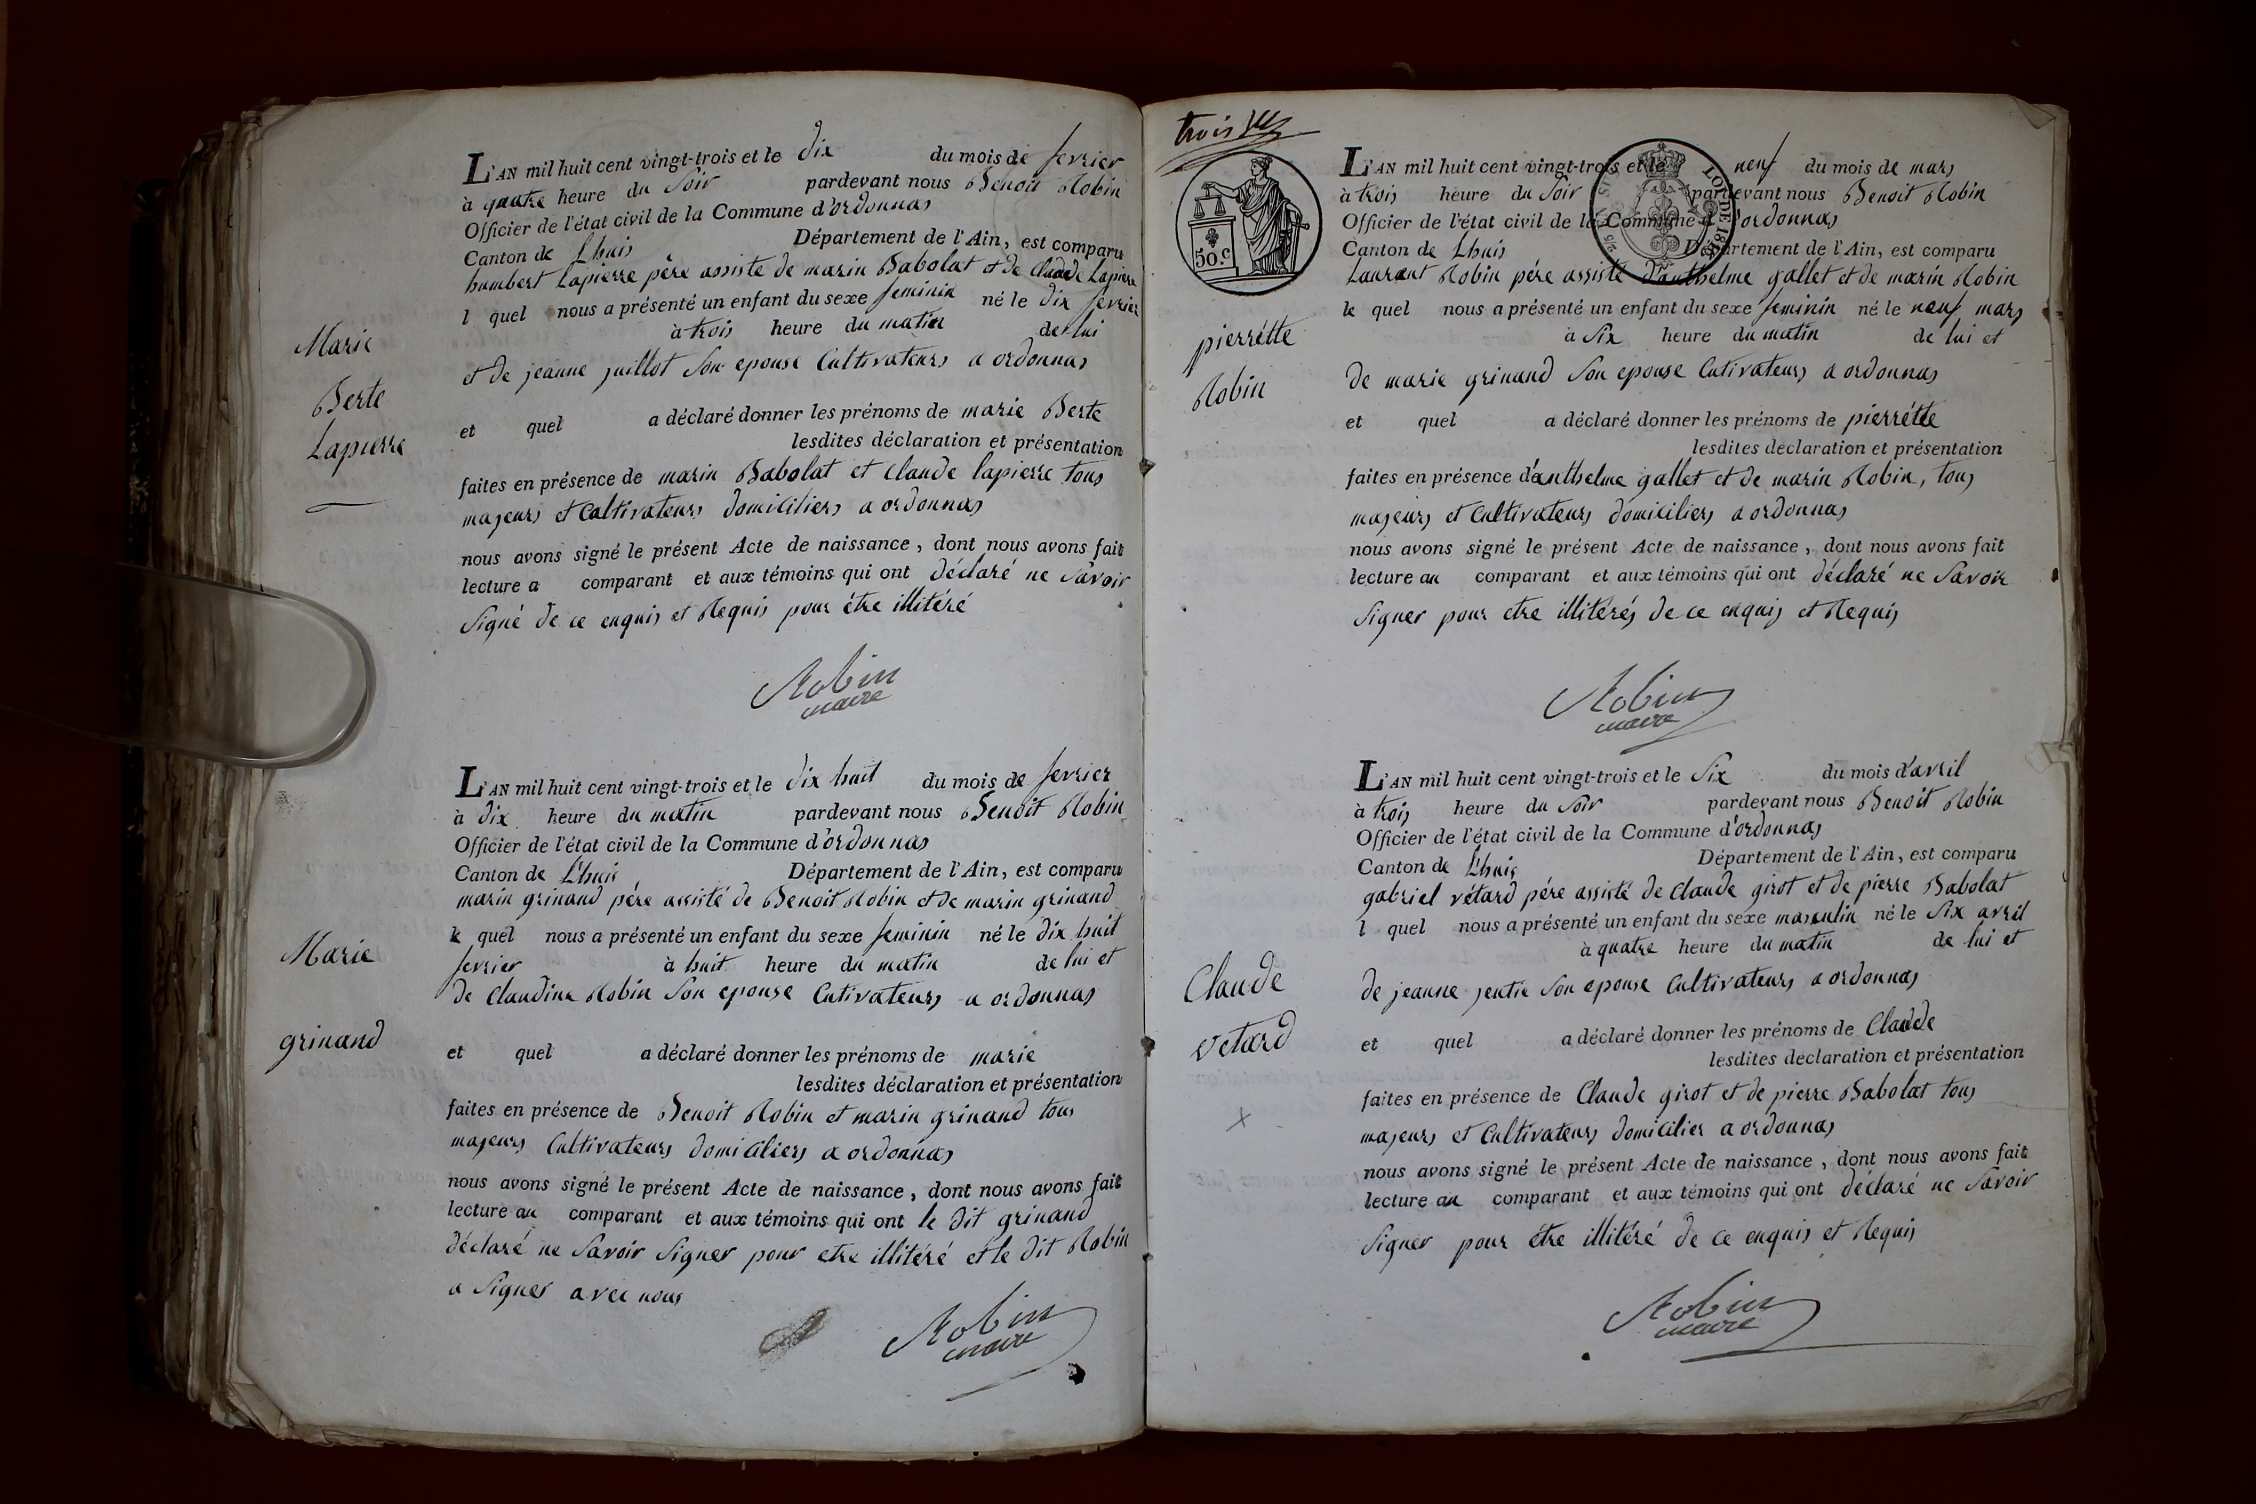 L'AN mil huit cent vingt-trois et le dix du mois de fevrier
à quatre heure du soir pardevant nous Benoit Robin
Officier de l'état civil de la Commune d'ordonnas
Canton de Lhuis Département de l'Ain, est comparu
humbert Lapierre pére assiste de marin Babolat et de Claude Lapierre
l quel nous a présenté un enfant du sexe feminin né le dix fevrier
à trois heure du matin de lui
et de jeanne juillot Son epouse Cultivateurs a ordonnas
Marie
Berte
Lapierre
et quel a déclaré donner les prénoms de marie Berte
lesdites déclaration et présentation
faites en présence de marin Babolat et Claude lapierre tous
majeurs et Cultivateurs domiciliers a ordonnas
nous avons signé le présent Acte de naissance, dont nous avons fait
lecture a comparant et aux témoins qui ont déclaré ne Savoir
Signé de ce enquis et Requis pour étre illitéré
Robin
maire
L'AN mil huit cent vingt-trois et le dix huit du mois de fevrier
à dix heure du matin pardevant nous Benoit Robin
Officier de l'état civil de la Commune d'ordonnas
Canton de Lhuis Département de l'Ain, est comparu
marin grinand pére assisté de Benoit Robin et de marin grinand
le quel nous a présenté un enfant du sexe feminin né le dix huit
fevrier à huit heure du matin de lui et
de Claudine Robin Son epouse Cutivateurs a ordonnas
Marie
grinand
et quel a déclaré donner les prénoms de marie
lesdites déclaration et présentation
faites en présence de Benoit Robin et marin grinand tous
majeurs Cultivateurs domiciliers a ordonnas
nous avons signé le présent Acte de naissance, dont nous avons fait
lecture au comparant et aux témoins qui ont le dit grinand
déclaré ne Savoir Signer pour etre illitéré et le dit Robin
a Signer avec nous
Robin
maire
trois
50.c
L'AN mil huit cent vingt-trois et le neuf du mois de mars
à trois heure du Soir pardevant nous Benoit Robin
Officier de l'état civil de la Commune d'ordonnas
Canton de Lhuis Département de l'Ain, est comparu
Laurent Robin pére assisté d'anthelme gallet et de marin Robin
le quel nous a présenté un enfant du sexe feminin né le neuf mars
à Six heure du matin de lui et
de marie grinand Son epouse Cutivateurs a ordonnas
pierrétte
Robin
et quel a déclaré donner les prénoms de pierrétte
lesdites declaration et présentation
faites en présence d'anthelme gallet et de marin Robin, tous
majeurs et Cultivateurs domiciliers a ordonnas
nous avons signé le présent Acte de naissance, dont nous avons fait
lecture au comparant et aux témoins qui ont déclaré ne Savoir
Signer pour etre illitérés de ce enquis et Requis
Robin
maire
L'AN mil huit cent vingt-trois et le Six du mois d'avril
à trois heure du Soir pardevant nous Benoit Robin
Officier de l'état civil de la Commune d'ordonnas
Canton de Lhuis Département de l'Ain, est comparu
gabriel vétard pére assisté de Claude girot et de pierre Babolat
l quel nous a présenté un enfant du sexe masculin né le Six avril
à quatre heure du matin de lui et
de jeanne jentie Son epouse Cultivateurs a ordonnas
Claude
vetard
et quel a déclaré donner les prénoms de Claude
lesdites declaration et présentation
faites en présence de Claude girot et de pierre Babolat tous
majeurs et Cultivateurs domicilier a ordonnas
nous avons signé le présent Acte de naissance, dont nous avons fait
lecture au comparant et aux témoins qui ont déclaré ne Savoir
Signer pour étre illitéré de ce enquis et Requis
Robin
maire